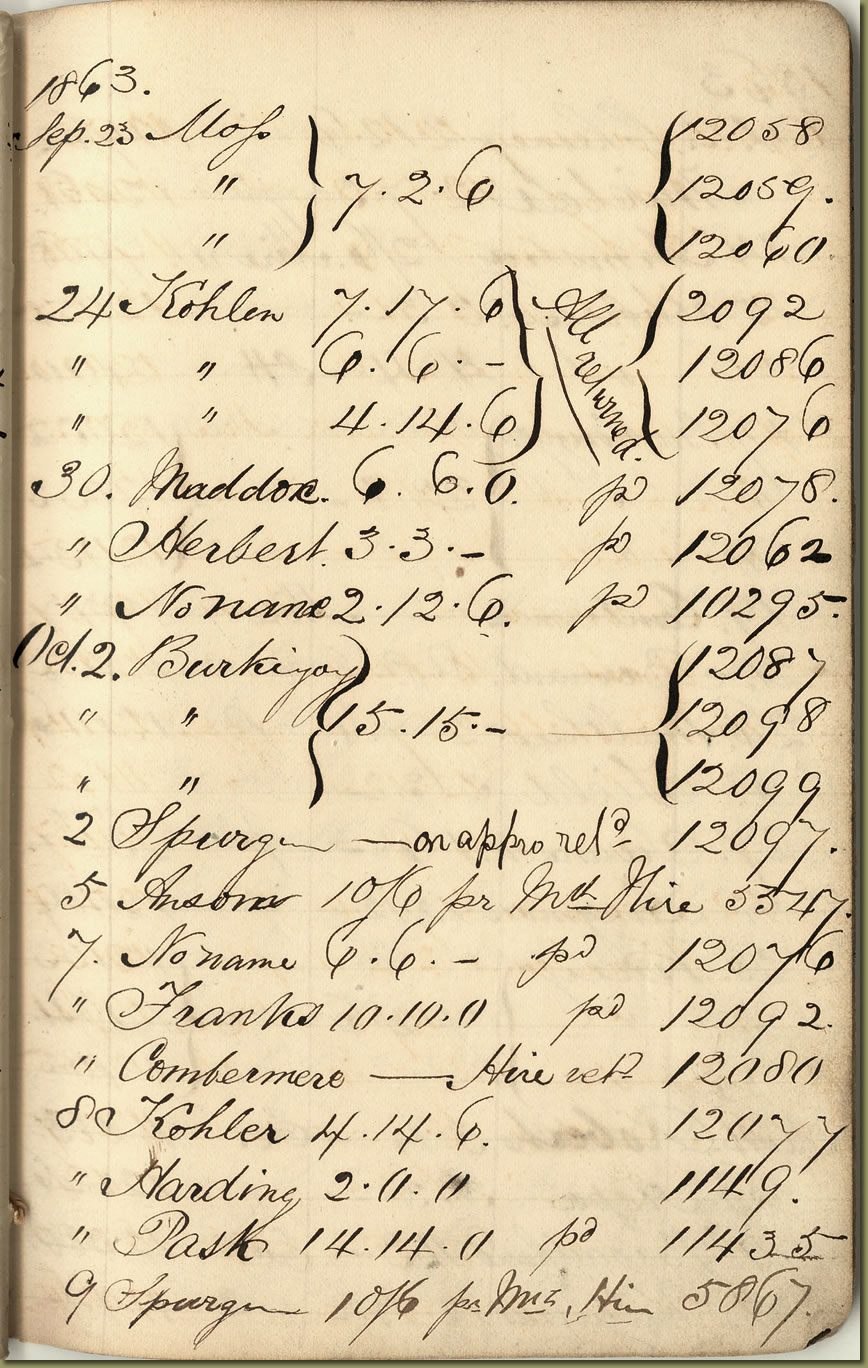 1863.
Sep. 23 Moss 12058
" 7.2.6 12059.
" 12060
24 Kohler 7.17.6 All returned. 2092
" " 6.6.- 12086
" " 4.14.6 12076
30. Maddox. 6.6.0. pd 12078.
" Herbert. 3.3.- pd 12062
" No name 2.12.6. pd 10295.
Oct. 2. 12087
" " 15.15.- 12098
" " 12099
2 Spurgin — on appro retd 12097.
5 Ansom 10/6 pr Mth Hire 5547.
7. No name 6.6.- pd 12076
" Franks 10.10.0 pd 12092.
" Combermere — Hire retd 12080
8 Kohler 4.14.6. 12077
" Harding 2.0.0 1149.
" Pask 14.14.0 pd 11435
9 Spurgin 10/6 pr Mth. Hire 5867.